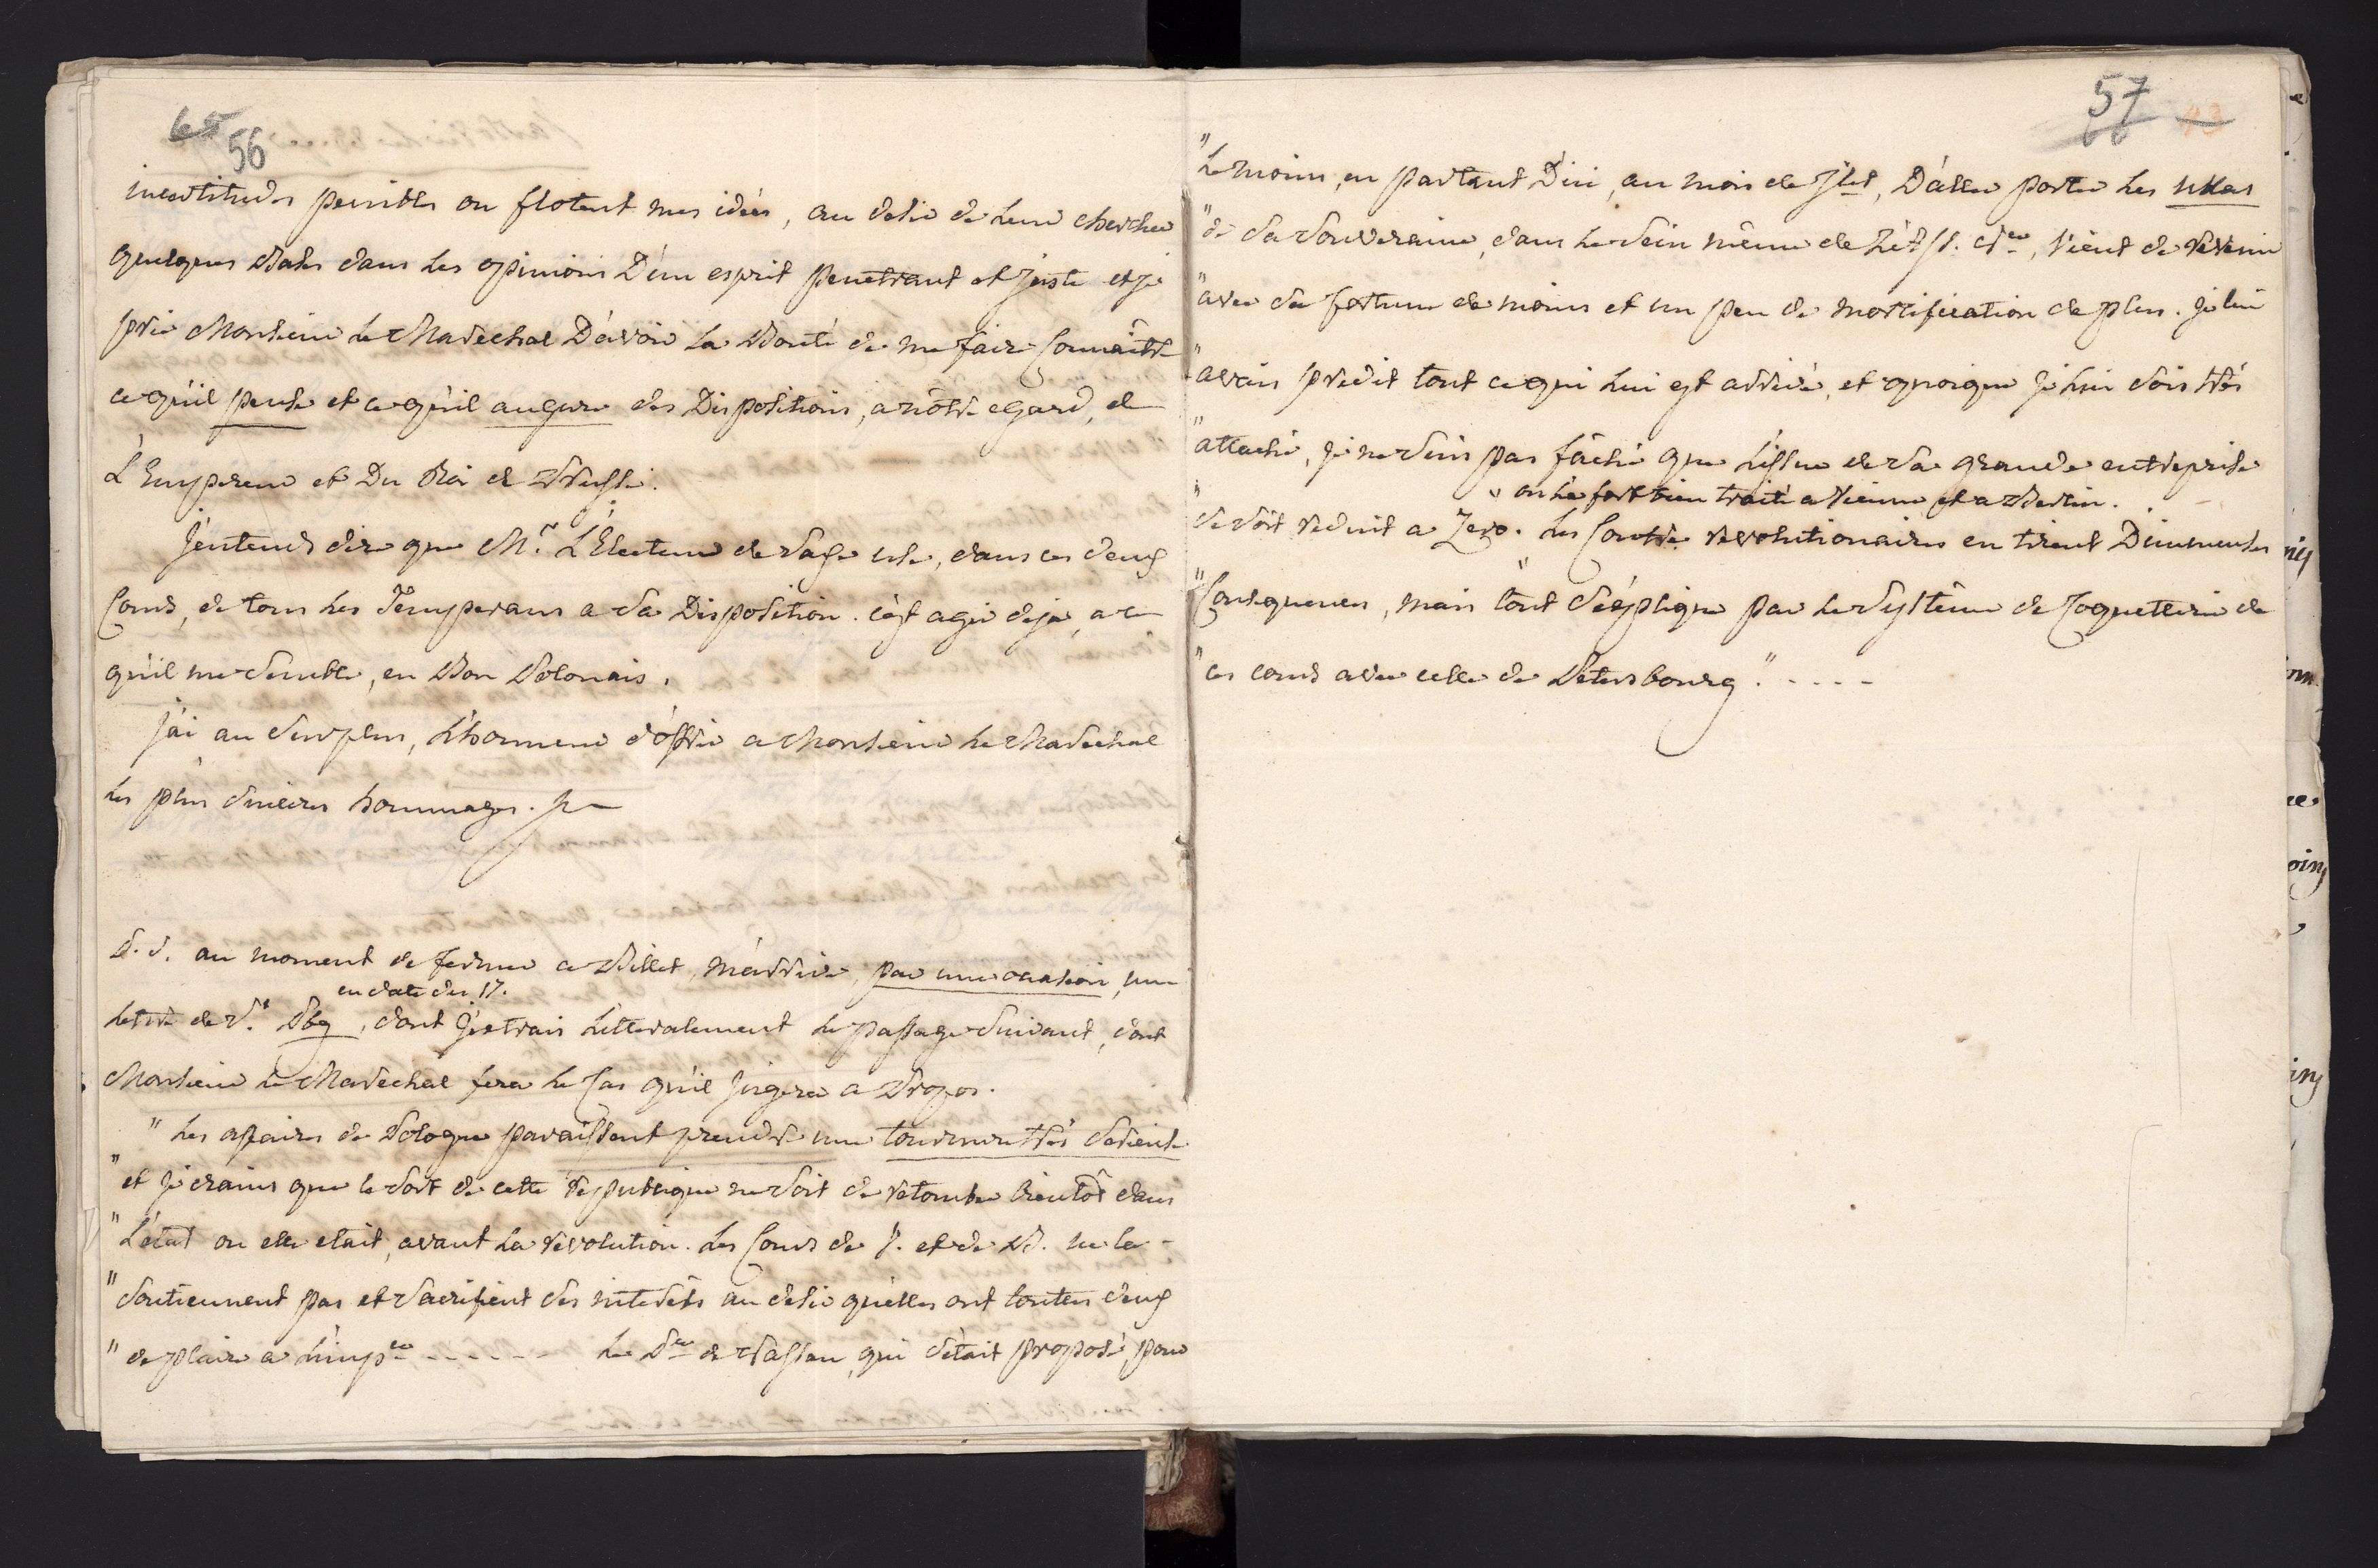 65 56
incertitudes penibles ou flotent mes idées, au desir de leur chercher
quelques bases dans les opinions d'un esprit penetrant et juste et je
prie Monsieur le Marechal d'avoir la Bonté de me faire Connaitre
ce qu'il pense et ce qu'il augure des Dispositions, a nôtre egard, de
L'Empereur et Du Roi de Prusse.
J'entends dire que Mr. L'Electeur de Saxe use, dans ces deux
Cours, de tous les Temperans a sa Disposition. c'est agir deja, a ce
qu'il me semble, en Bon Polonais.
J'ai au surplus, l'honneur d'offrir a Monsieur le Marechal
les plus sinceres hommages.
P.S. au moment de fermer ce Billet, m'arrive, par une ocasion, une
en date du 17.
lettre de St. Pbg, dont j'extrais litteralement le passage suivant, dont
Monsieur le Marechal fera le Cas qu'il jugera a Propos.
"Les afaires de Pologne paraissent prendre une tournure trés serieuse
"et je crains que le sort de cette republique ne soit de retomber bientôt dans
"L'état ou elle etait, avant la revolution. Les Cours de V. et de B. ne la
"soutiennent pas et sacrifient ses interêts au desir qu'elles ont toutes deux
"de plaire a l'imp.ce - - - - - - Le P.ce de Nassau, qui s'était proposé pour
57 66 43
"le moins, en partant D'ici, au mois de Jlet, D'aller porter les ukas
"de sa souveraine, dans le sein même de l'ass. n.le, vient de revenir
"avec sa fortune de moins et un peu de mortification de plus. je lui
"avais predit tout ce qui lui est arrivé, et quoique je lui sois trés
"attaché, je ne suis pas fâché que l'issue de sa grande entreprise
"on l'a fort bien traité a Vienne et a Berlin.
"se soit reduit a Zero. les Contre revolutionaires en tirent D'immenses
"Consequences, mais tout s'explique par le systême de Coquetterie de
"ces cours avec celle de Petersbourg". - - - -